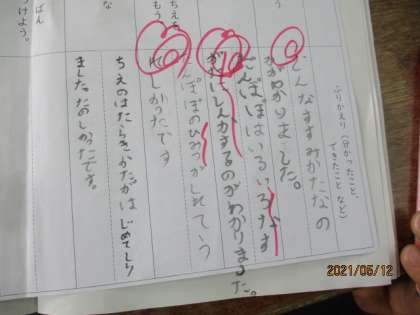 ふりかえり(分かったこと、
できたこと など)
どんなすすみかたなの
かがわかりました。
たんぽぽはいろいろなす
がたにしんかするのがわかりました。
たんぽぽのひみつがしれてう
れしかったです
ちえのはたらきかたがはじめてしり
ました。たのしかったです。
つけよう。
2021/05/12